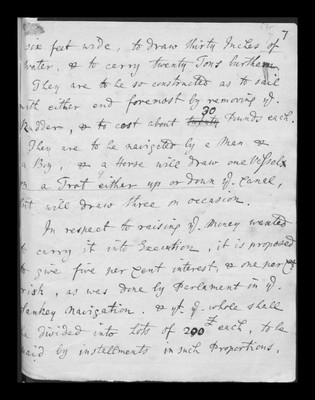 7
six feet wide, to draw thirty Inches of
water, & to carry twenty Tons burthen
They are to be so constructed as to sail
with either end foremost by removing yͤ.
Rudder, & to cost about 30 Pounds each.
They are to be navigated by a Man &
a Boy, & a Horse will draw one Vessel
on a Trot either up or down yͤ. Canal,
but will draw three on occasion.
In respect to raising yͤ. Money wanted
to carry it into Execution, it is proposed
to give five per Cent interest, & one per Ct
risk, as was done by Parlament in yͤ.
Sankey Navigation. & yͭ. yͤ. whole shall
be divided into Lots of 200£ each, to be
paid by installments in such Proportions,